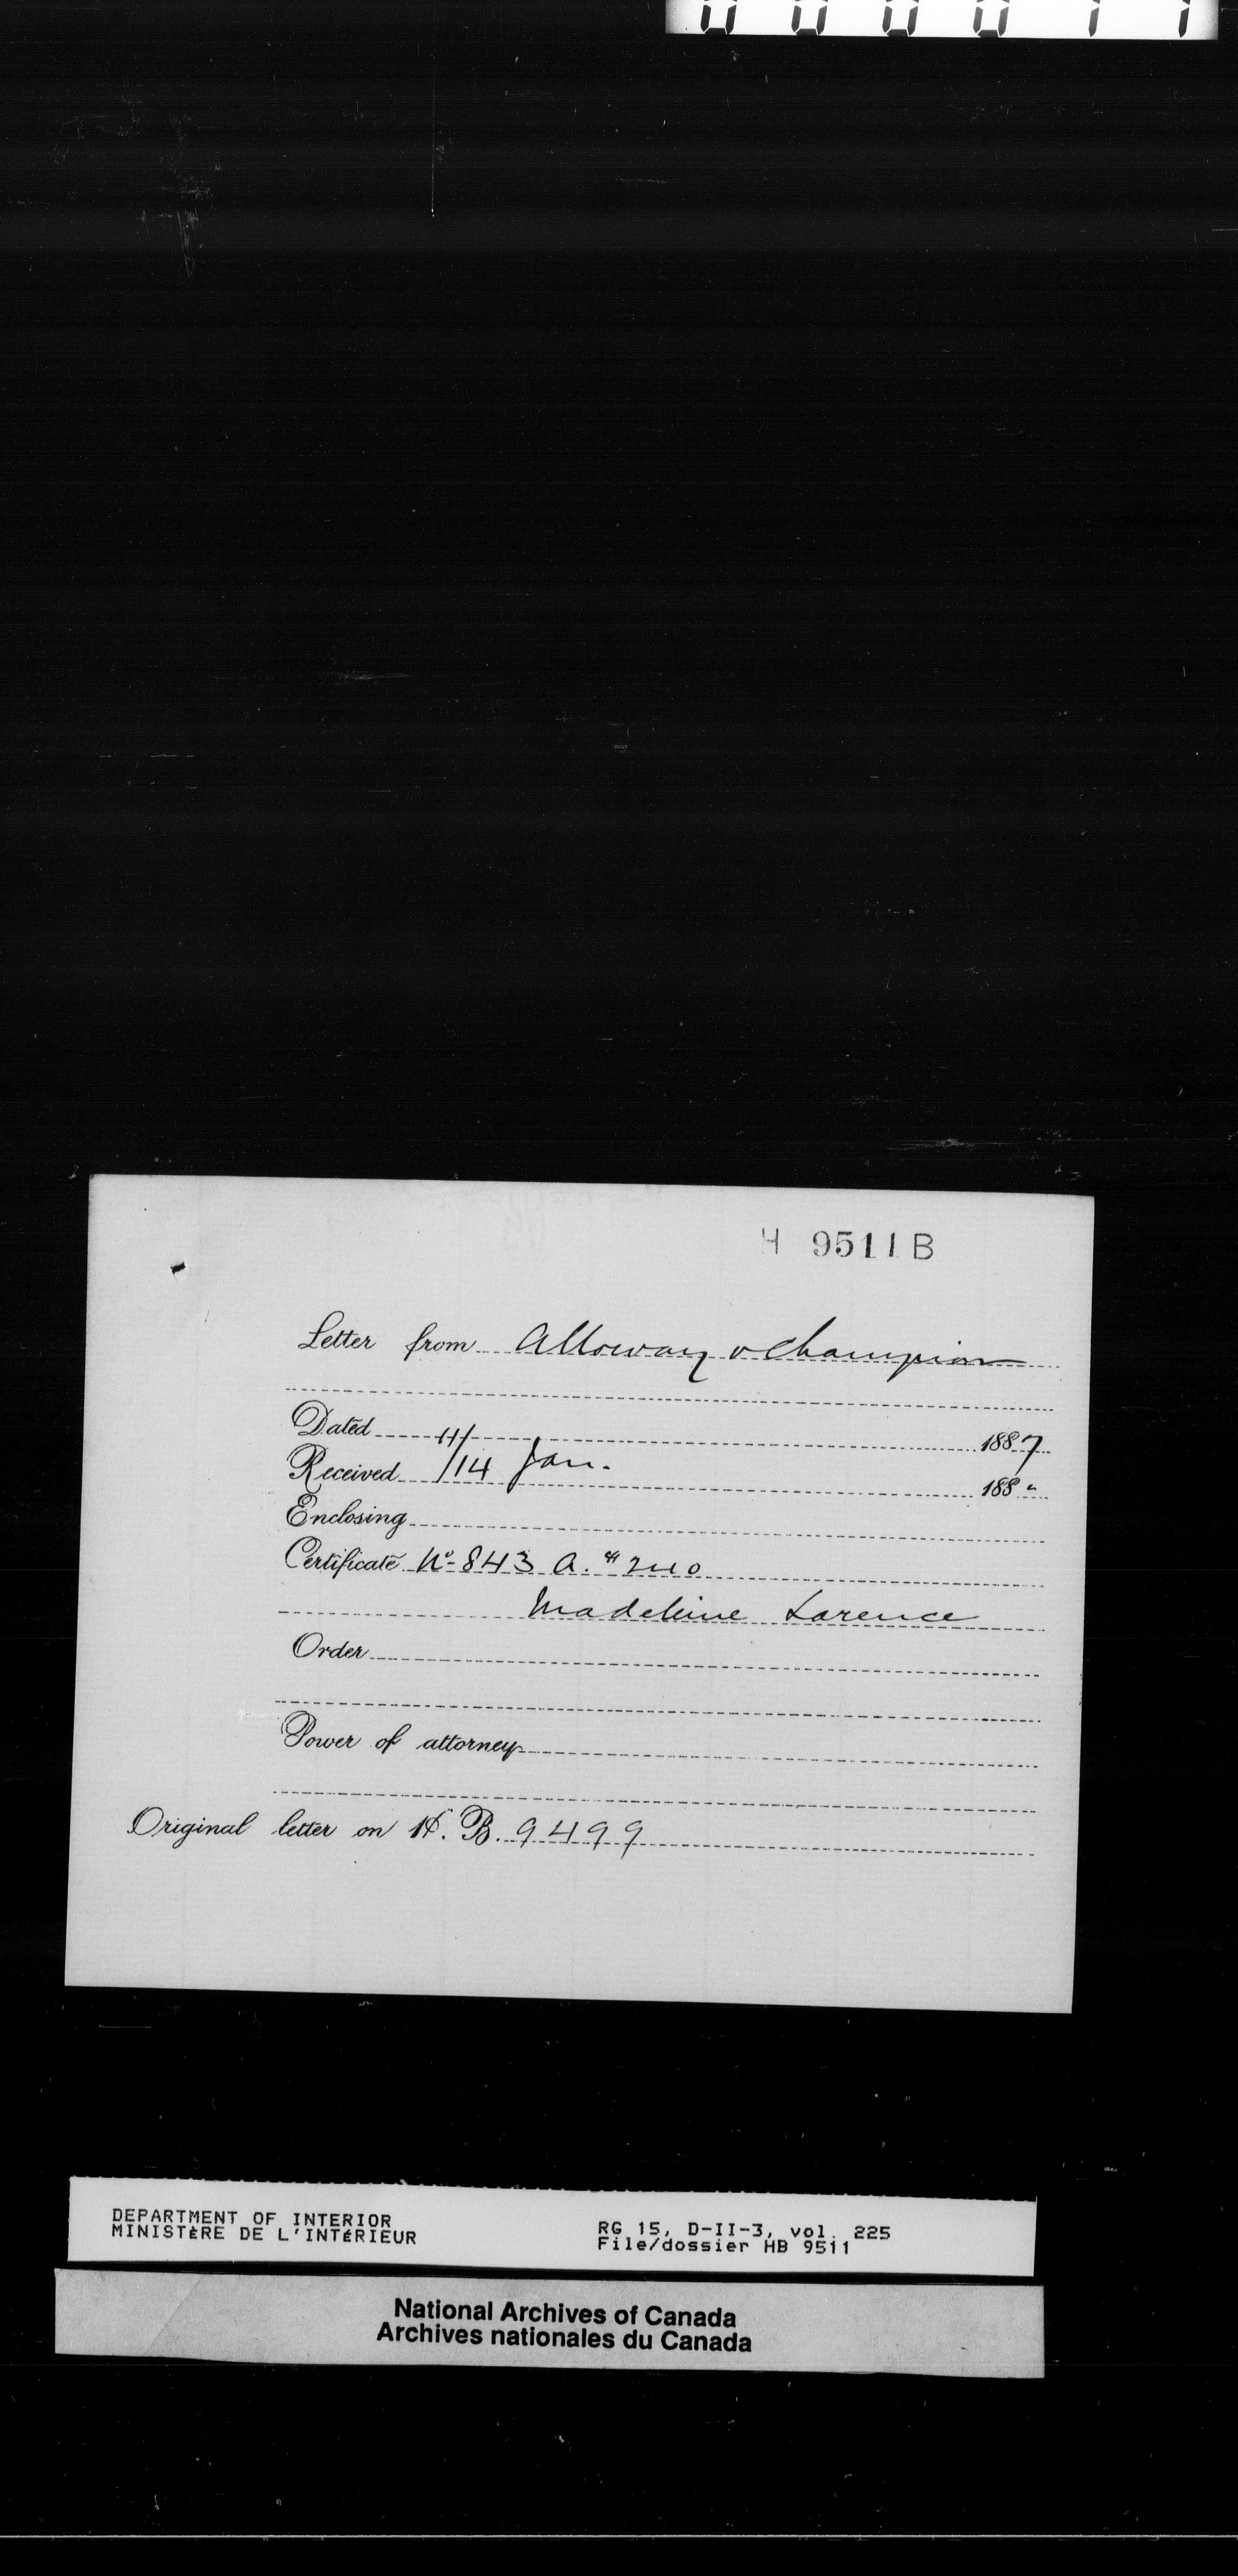 H 9511 B
Letter from Alloway & Champion
Dated 11/ 1887
Received /14 Jan. 188 "
Enclosing
Certificate No 843 A. $240
Madeleine Larence
Order
Power of attorney
Original letter on H. B. 9499
DEPARTMENT OF INTERIOR
MINISTÈRE DE L'INTÉRIEUR
RG 15, D-II-3, vol. 225
File/dossier HB 9511
National Archives of Canada
Archives nationales du Canada